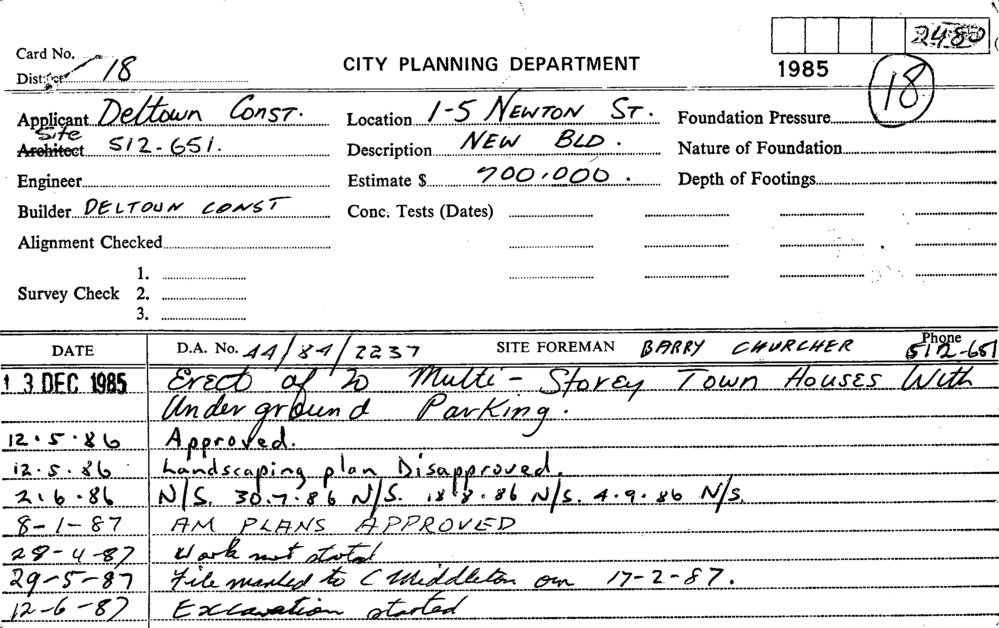 2480
Card No.
CITY PLANNING DEPARTMENT
District 18
1985
18
Applicant Deltown Const.
Location 1-5 NEWTON ST.
Foundation Pressure
Site
Architect 512-651.
Description NEW BLD.
Nature of Foundation
Engineer
Estimate $ 700,000.
Depth of Footings
Builder DELTOWN CONST
Conc. Tests (Dates)
Alignment Checked
1.
Survey Check 2.
3.
DATE
D.A. No. 44/84/2237
SITE FOREMAN BARRY CHURCHER
Phone
512-651
13 DEC 1985 Erect of 20 Multi-Storey Town Houses With
Underground Parking.
12.5.86 Approved.
12.5.86 Landscaping plan Disapproved.
2.6.86 N/S. 30.7.86 N/S. 18.8.86 N/S. 4.9.86 N/S.
8-1-87 AM PLANS APPROVED
28-4-87 Work not started
29-5-87 File marked to C Middleton on 17-2-87.
12-6-87 Excavation started